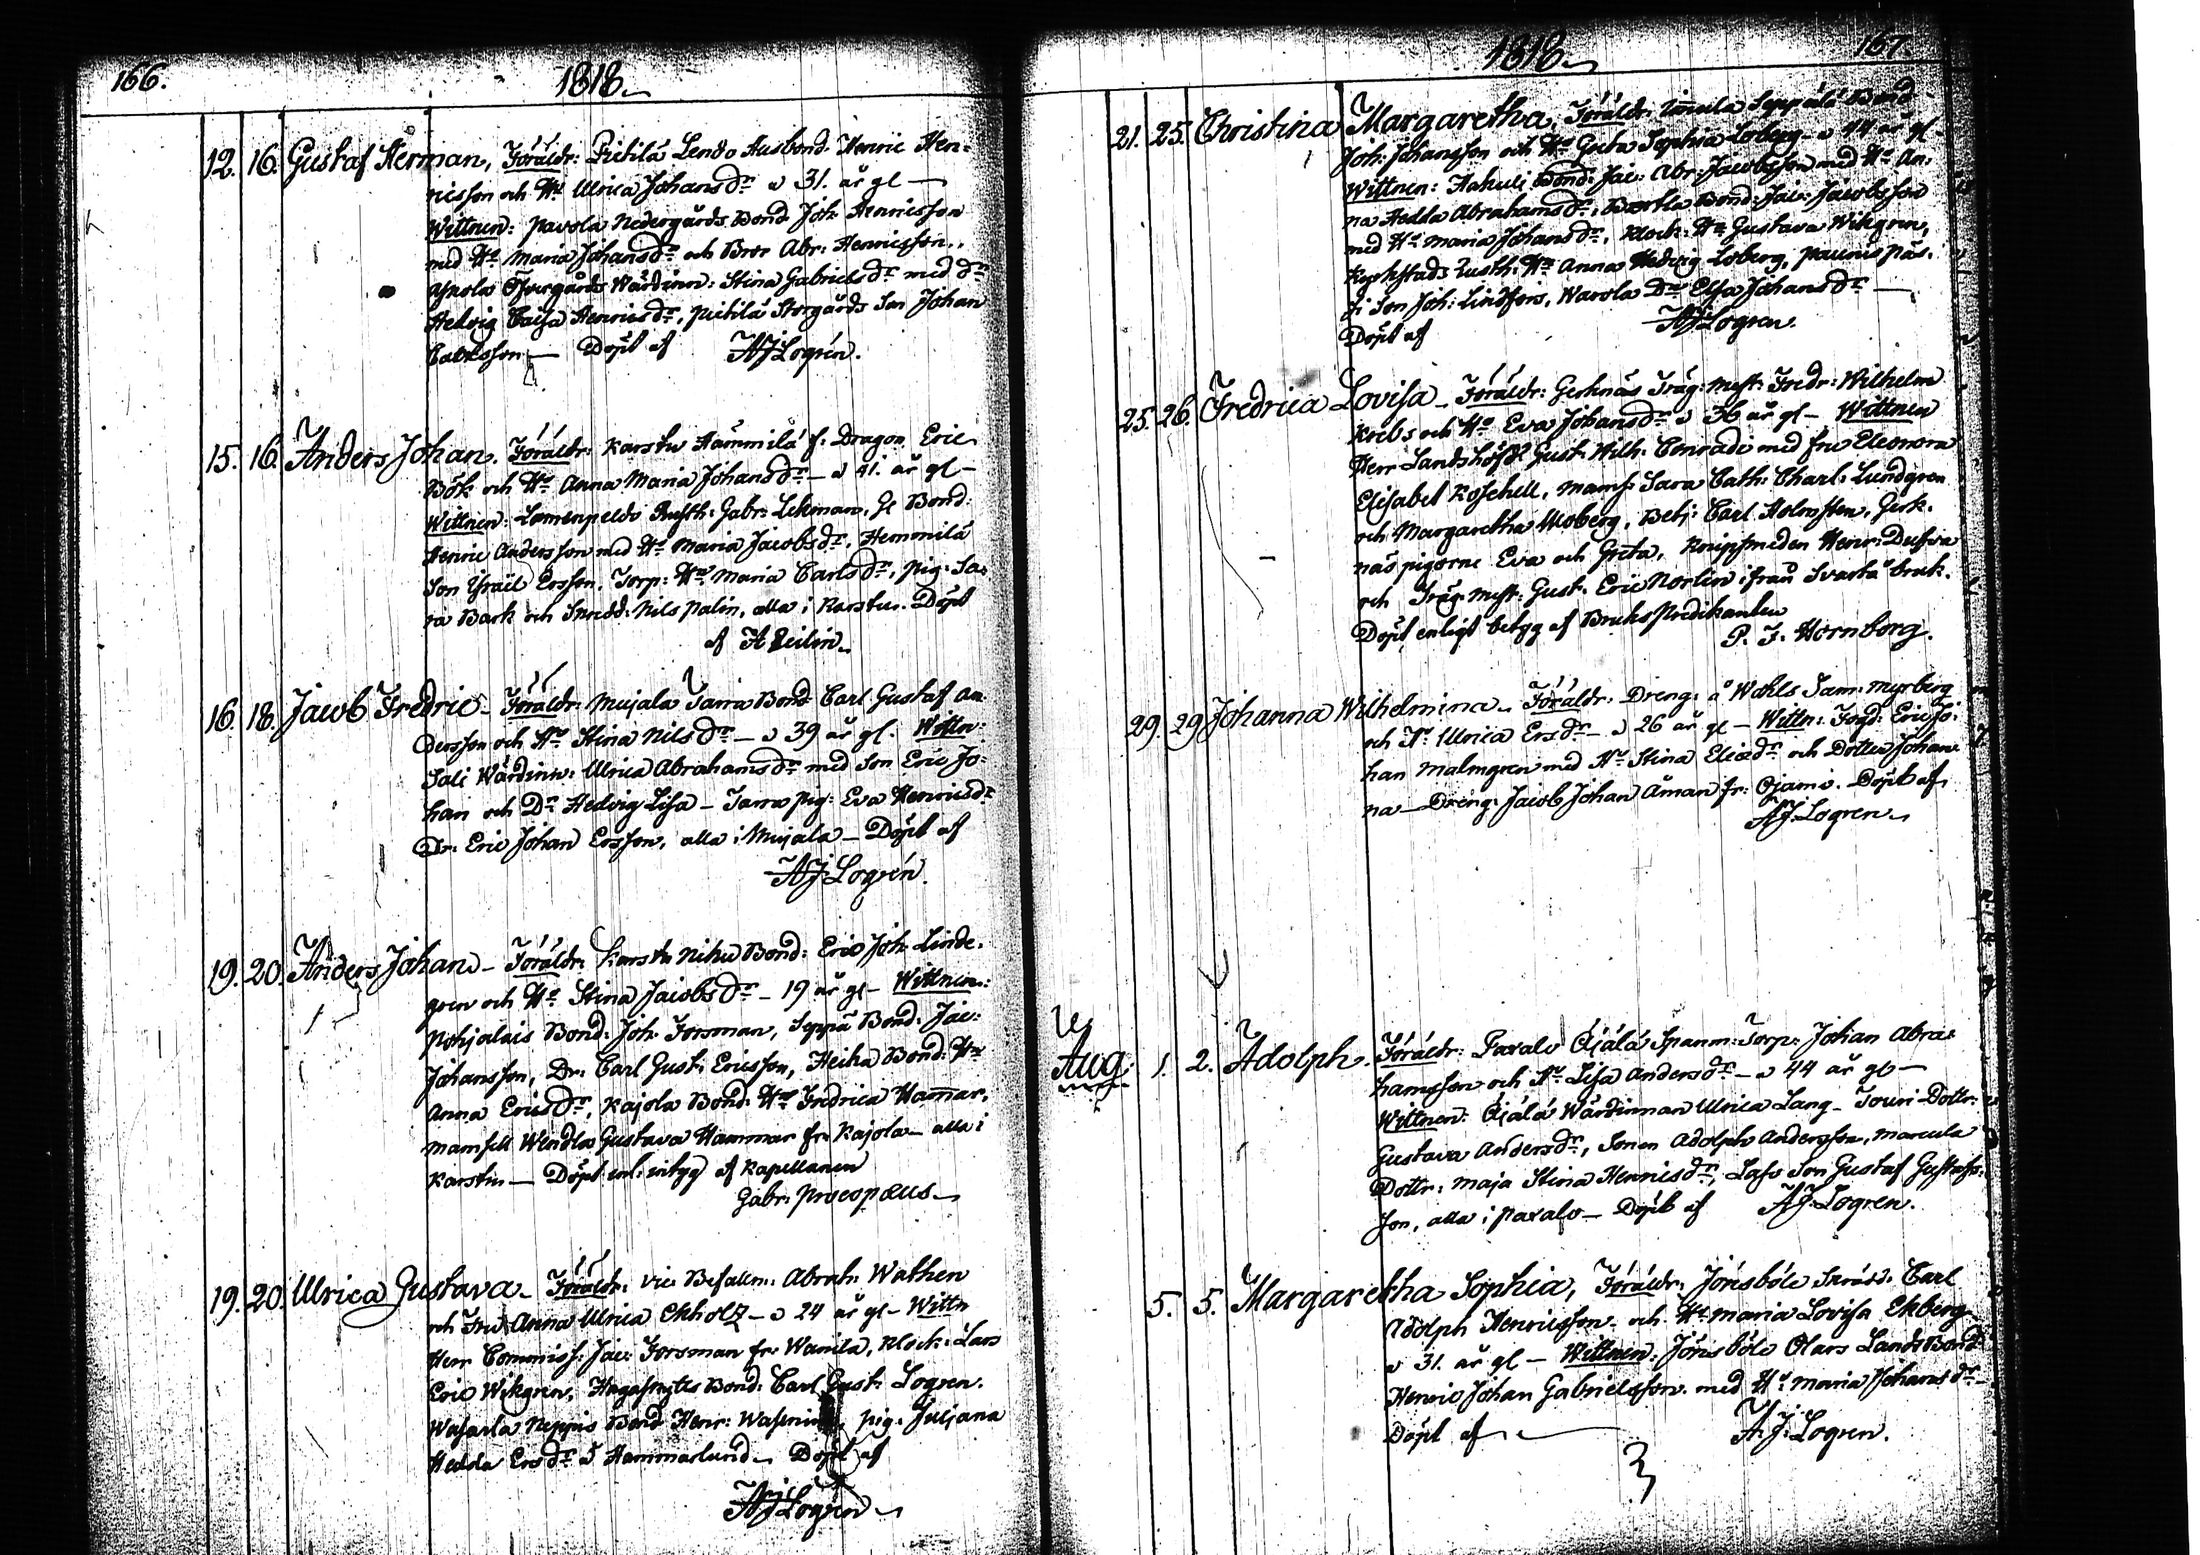 166.
1818.
12. 16. Gustaf Herman, Föräldr: Pietilä Lendo Husbond. Henric Hen-
ricsson och Hu Ulrica Johansdr a 31. år gl —
Wittnen: Pavola Nedergårds Bond. Joh. Henricsson
med Hu Maria Johansdr och Bror Abr: Henricsson,
Öfvergårds Wärdinn: Stina Gabrielsdr med dr
Hedvig Caisa Henricsdr, Pietilä Storgårds Son Johan
Carlsson — Döpt af AJLogrén.
15. 16. Anders Johan. Föräldr: Karstu Hämmilä f. Dragon Eric
Bök och Hu Anna Maria Johansdr — a 41. år gl —
Wittnen: Lamenpeldo Rusth: Gabr: Lekman, Bond:
Henric Andersson med Hu Maria Jacobsdr, Hemmilä
Son Israël Ersson, Torp: Hu Maria Carlsdr, pig: Sa-
ra Bark och Skredd: Nils Palin, alla i Karstu. Döpt
af A Zeilin
16. 18. Jacob Fredric — Föräldr: Mujala Bond Carl Gustaf An-
dersson och Hu Stina Nilsdr — a 39 år gl. Wittn:
Sali Wärdinn: Ulrica Abrahamsdr med Son Eric Jo-
han och Dr Hedvig Lisa — pig: Eva Henricsdr
Dr: Eric Johan Ersson, alla i Mujala — Döpt af
AJLogrén.
19. 20. Anders Johan — Föräldr: Karstu Nihu Bond: Eric Joh: Linde-
gren och Hu Stina Jacobsdr — 19 år gl — Wittnen:
Pohjolais Bond: Joh: Forsman, Seppä Bond: Jac:
Johansson, Dr: Carl Gust: Ericsson, Heika Bond: Hu
Anna Ericsdr, Kajola Bond: Hu Fredrica Hamar,
Mamsell Wendla Gustava Hammar fr: Kajola — alla i
Karstu — Döpt enl: intyg af Kapellanen
Gabr: Procopæus
19. 20. Ulrica Gustava — Föräldr: Vice Befallm: Abrah: Wathen
och Fru Anna Ulrica Ekholtz — a 24 år gl — Wittn
Herr Commiss: Jac: Forsman fr: Wanila, Klock: Lars
Eric Wikgren, Hagasnytts Bond: Carl Gust: Logren.
Wasarla Neppis Bond Henr: pig: Juljana
Hedda Ersdr å Hammarlund — Döpt af
AJLogrén
1818.
167.
21. 25. Christina Margaretha, Föräldr: Seppälä Bond
Joh: Johansson och Hu Gusta Sophia Loberg — a 44 år gl —
Wittnen: Hakuli Bond: Jac: Abr: Jacobsson med Hu An-
na Hedda Abrahamsdr, Bond: Jac: Jacobsson
med Hu Maria Johansdr, Klock: Hu Gustava Wikgren,
Kyrkstads Rusth: Hu Anna Hedvig Loberg, Paunis Päs-
si Son Joh: Lindfors, Warola Dr Elsa Johansdr —
Döpt af AJLogren.
25. 26. Fredrica Lovisa — Föräldr: Gerknäs Träg: mest: Fredr: Wilhelm
Krebs och Hu Eva Johansdr a 36 år gl — Wittnen
Herr Landshöfd: Gust: Wilh: Conradi med fru Eleonora
Elisabet Roschell, Mams: Sara Cath: Charl: Lundgren
och Margaretha Moberg, Betj: Carl Holmsten, Gerk-
näs pigorne Eva och Greta, Knipsmeden Henr: Dufva
och Träg: mest: Gust: Eric Norlin ifrån Svartå bruk.
Döpt enligt betyg af Bruks Predikanten
P. F. Hornborg.
29. 29. Johanna Wilhelmina — Föräldr: Dreng: å Wohls Sam: Myrberg
och Hu Ulrica Ersdr — a 26 år gl — Wittn: Fogd: Eric Jo-
han Malmgren med Hu Stina Eliædr och Dotter Johan-
na — Dreng: Jacob Johan Åman fr: Ojamo. Döpt af
AJLogren
Aug: 1. 2. Adolph. Föräldr: Paxalo Äijälä Spanm: Torp: Johan Abra-
hamsson och Hu Lisa Andersdr — a 44 år gl —
Wittnen: Äijälä Wärdinnan Ulrica Lang — Touri Dottr:
Gustava Andersdr, Sonen Adolph Andersson, Marcula
Dottr: Maja Stina Henricsdr, Lass Son Gustaf Gustafs-
son, alla i Paxalo — Döpt af AJLogren.
5. 5. Margaretha Sophia, Föräldr: Jönsböle Skrädd: Carl
Adolph Henricsson och Hu Maria Lovisa Ekberg
a 31. år gl — Wittnen: Jönsböle Olars Lands Bond:
Henric Johan Gabrielsson med Hu Maria Johansdr —
Döpt af A.J. Logren.